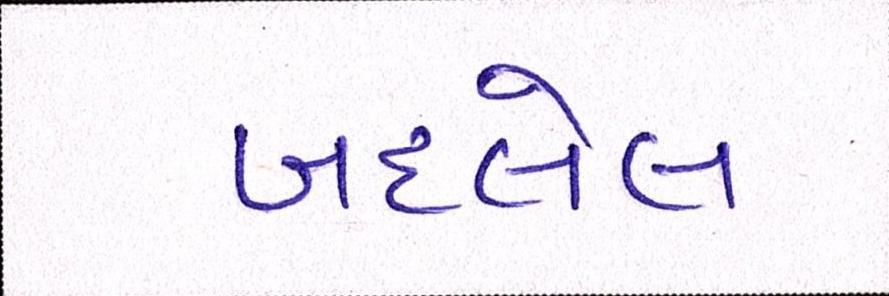 બદલેલ